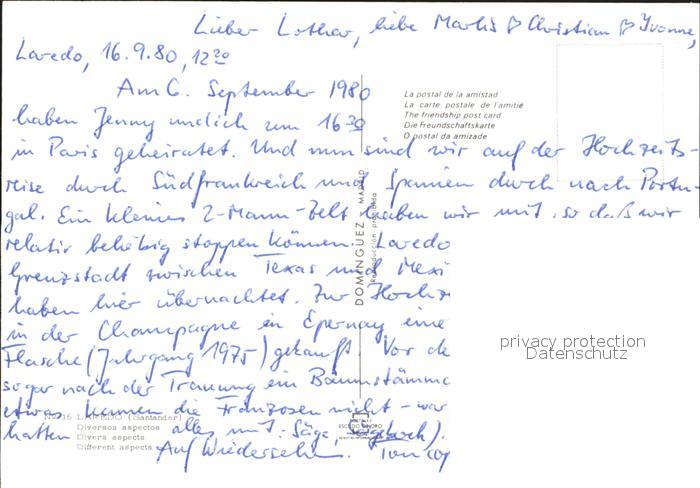 Lieber Lothar, liebe Marlis & Christian & Yvonne,
Laredo, 16.9.80, 12²⁰
Am 6. September 1980
haben Jenny und ich um 16³⁰
in Paris geheiratet. Und nun sind wir auf der Hochzeits-
reise durch Südfrankreich und Spanien durch nach Portu-
gal. Ein kleines 2-Mann-Zelt haben wir mit, so daß wir
relativ beliebig stoppen können. Laredo
Grenzstadt zwischen Texas und Mexi
haben hier übernachtet. Zur Hochze
in der Champagne in Epernay eine
Flasche (Jahrgang 1975) gekauft. Vor de
sogar nach der Trauung ein Baumstämmc
etwas kennen die Franzosen nicht - war
hatten alles mit: Säge,
Auf Wiedersehn.
La postal de la amistad
La carte postale de l'amitié
The friendship post card
Die Freundschaftskarte
O postal da amizade
DOMINGUEZ - MADRID
Reproducción prohibida
No. 16 LAREDO (Santander)
Diversos aspectos
Divers aspects
Different aspects
ESCUDO DE ORO
privacy protection
Datenschutz